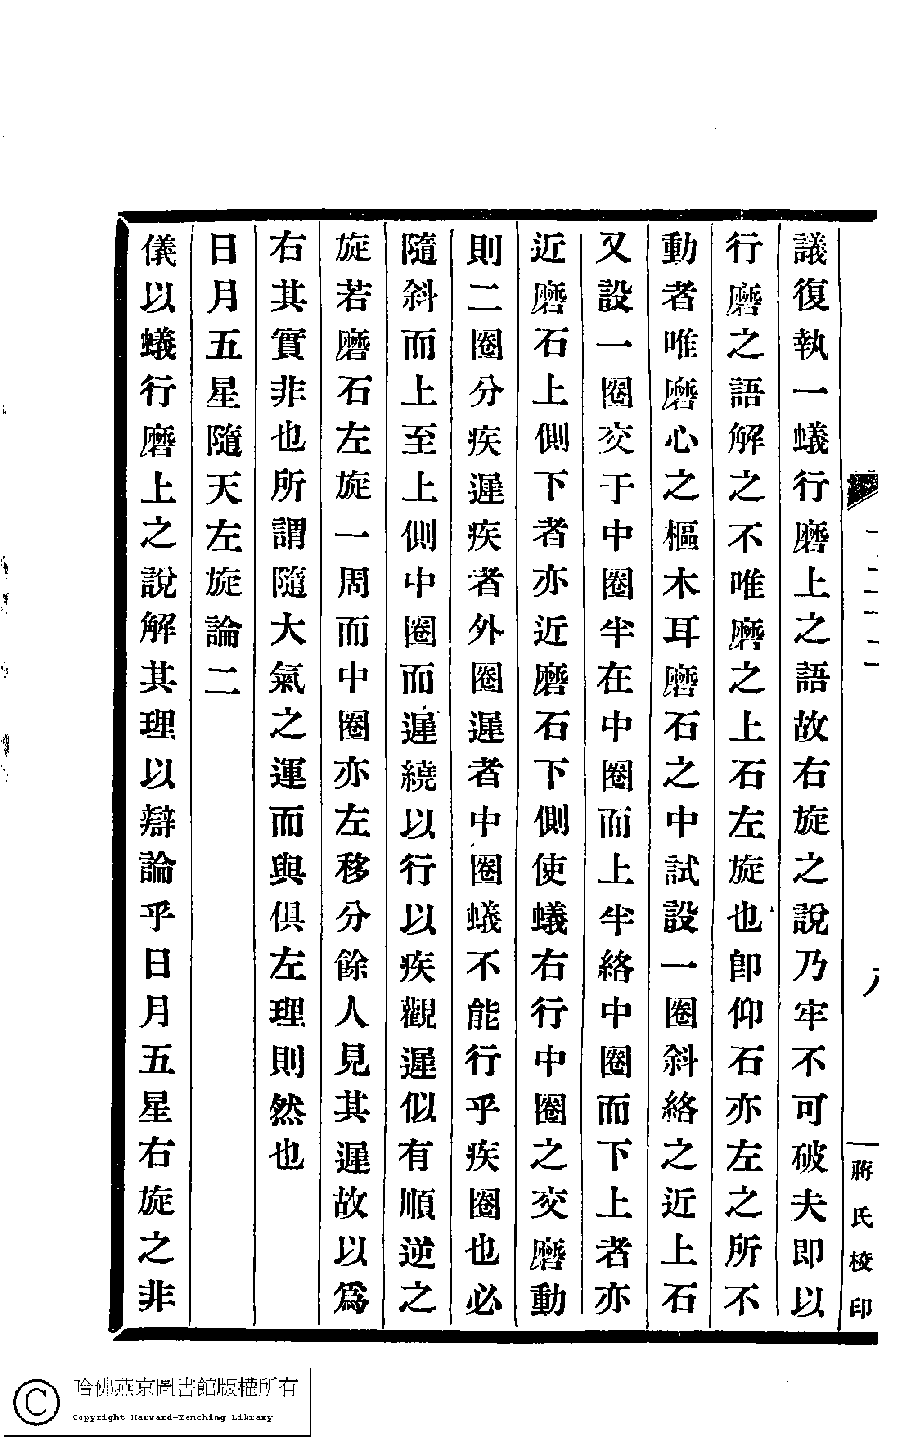 議復執一蟻行磨上之語故右旋之說乃牢不可破夫即以
行磨之語解之不唯磨之上石左旋也卽仰石亦左之所不
動者唯磨心之樞木耳磨石之中試設一圈斜絡之近上石
又設一圈交于中圈半在中圈而上半絡中圈而下上者亦
近磨石上側下者亦近磨石下側使蟻右行中圈之交磨動
則二圈分疾遲疾者外圈遲者中圈蟻不能行乎疾圈也必
隨斜而上至上側中圈而遲繞以行以疾觀遲似有順逆之
旋若磨石左旋一周而中圈亦左移分餘人見其遲故以爲
右其實非也所謂隨大氣之運而與俱左理則然也
日月五星隨天左旋論二
儀以蟻行磨上之說解其理以辯論乎日月五星右旋之非
蔣氏校印
哈佛燕京圖書館版權所有
Copyright Harvard-Yenching Library